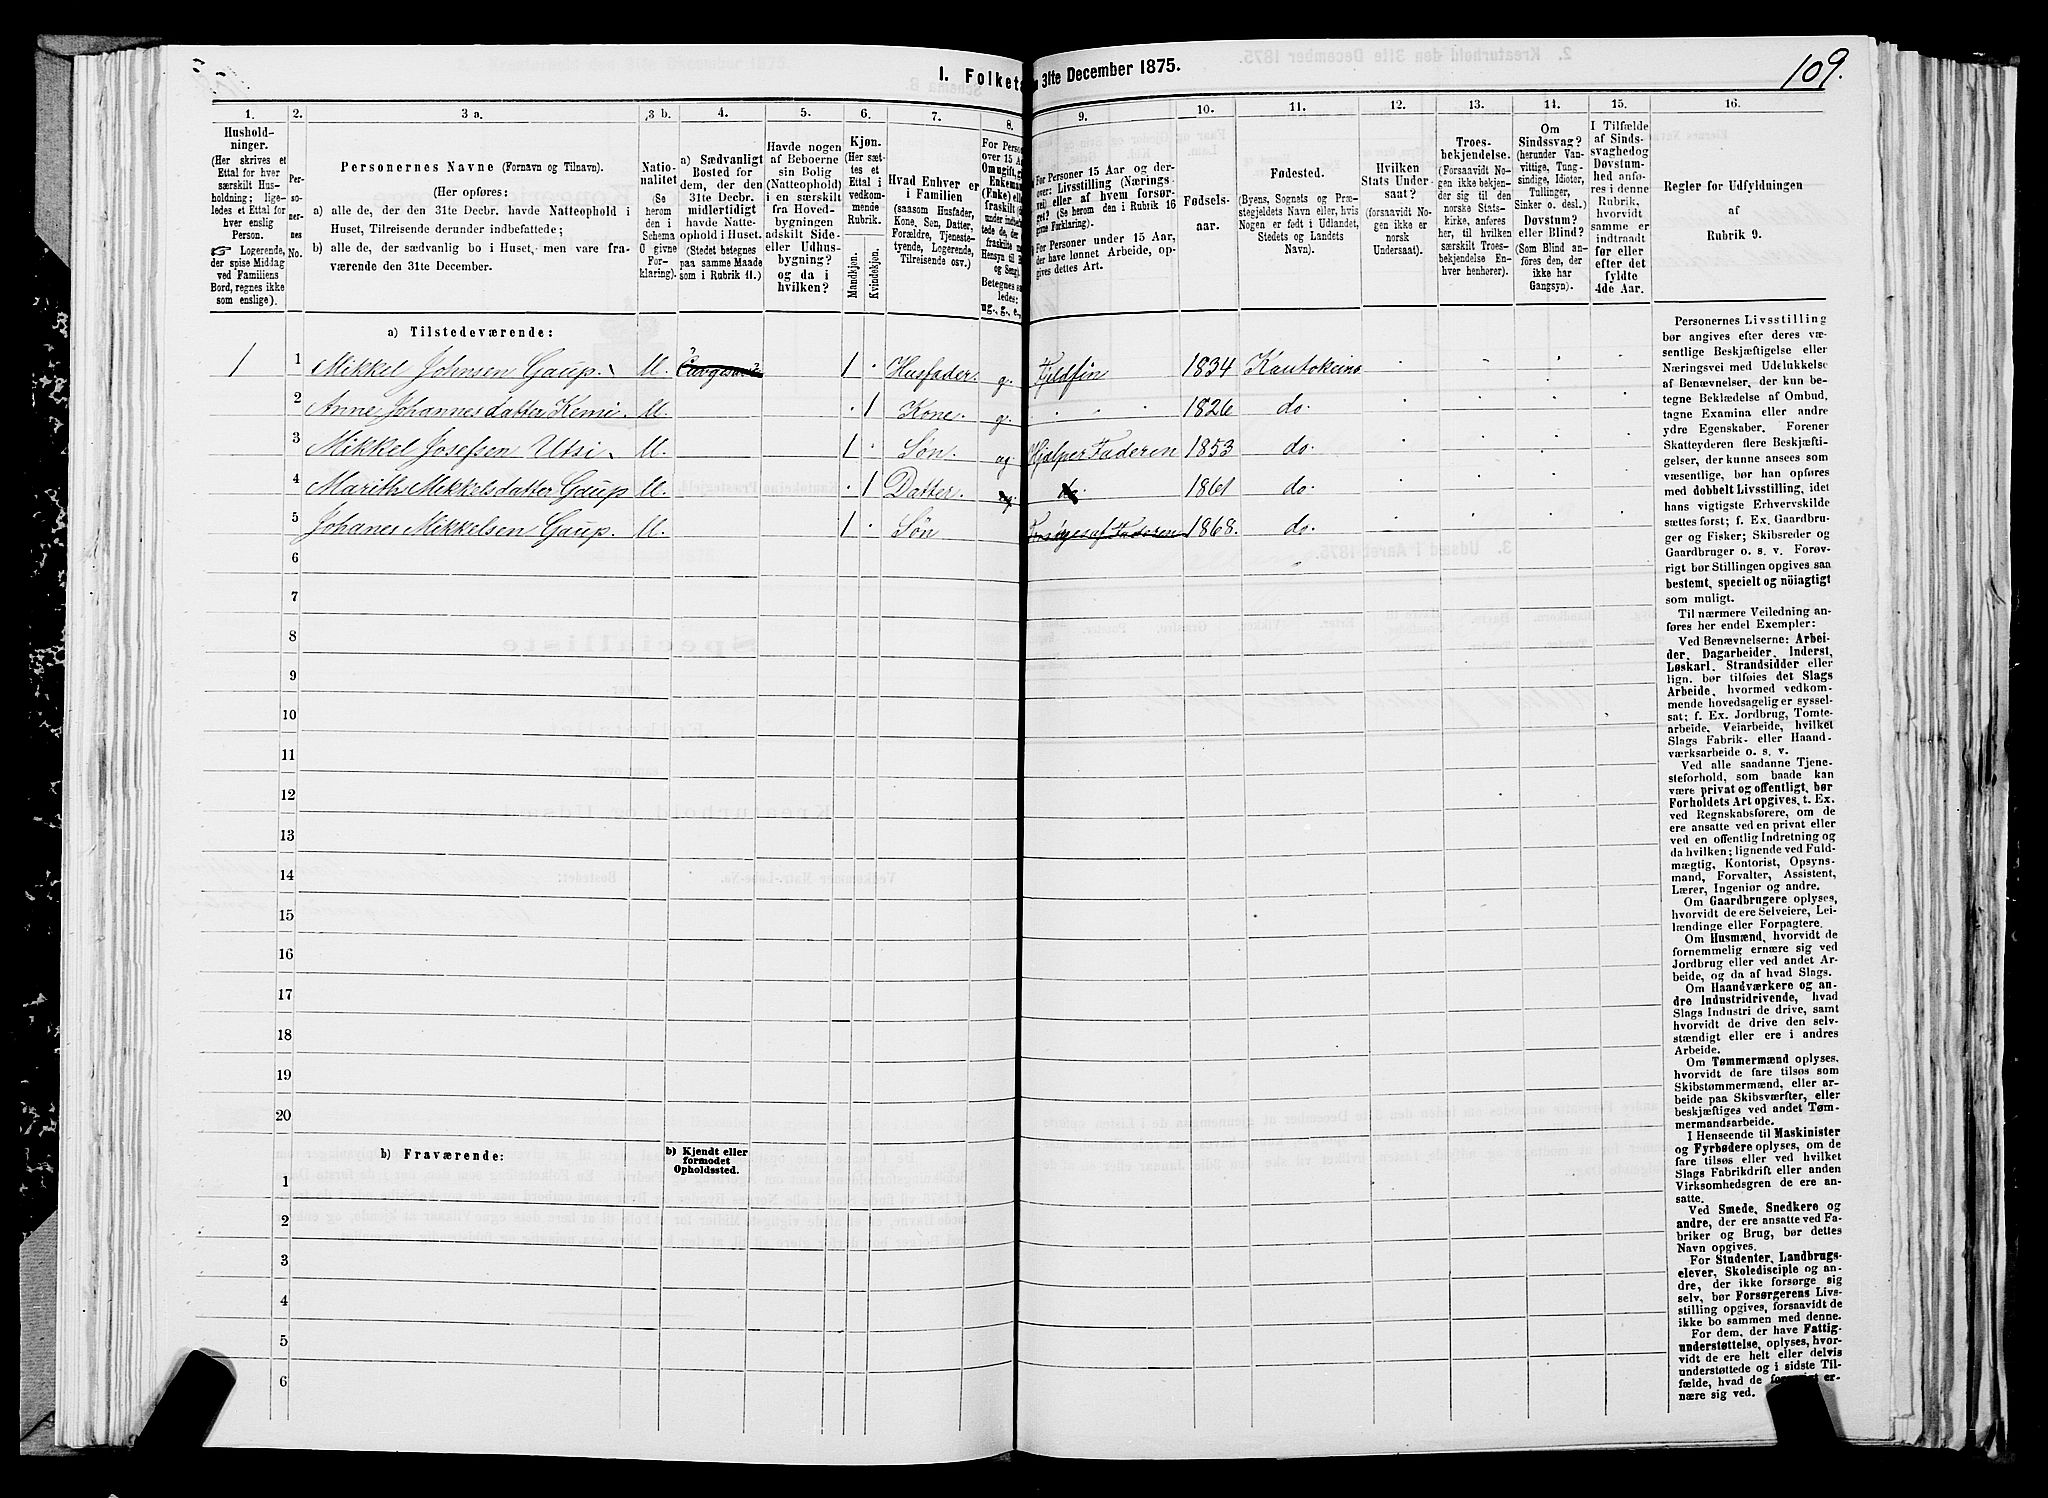 109.
I. Folketæ
n 31te December 1875.
1.
2.
3 a.
3 b.
4.
5.
6.
7.
8.
9.
10.
11.
12.
13.
14.
15.
16.
Hushold-
ninger.
(Her skrives et
Ettal for hver
særskilt Hus-
holdning; lige-
ledes et Ettal for
hver enslig
Person.
☞ Logerende,
der spise Middag
ved Familiens
Bord, regnes ikke
som enslige).
Per-
so-
ner-
nes
No.
Personernes Navne (Fornavn og Tilnavn).
(Her opføres:
a) alle de, der den 31te Decbr. havde Natteophold i
Huset, Tilreisende derunder indbefattede;
b) alle de, der sædvanlig bo i Huset, men vare fra-
værende den 31te December.
Natio-
nalitet
(Se
herom
den i
Schema
O givne
For-
klaring).
a) Sædvanligt
Bosted for
dem, der den
31te Decbr.
midlertidigt
havde Natte-
ophold i Huset.
(Stedet betegnes
paa samme Maade
som i Rubrik 11.)
Havde nogen
af Beboerne
sin Bolig
(Natteophold)
i en særskilt
fra Hoved-
bygningen
adskilt Side-
eller Udhus-
bygning?
og da i
hvilken?
Kjøn.
(Her sæt-
tes et
Ettal i
vedkom-
mende
Rubrik.
Mandkjøn.
Kvindekjøn.
Hvad Enhver er
i Familien
(saasom Husfader,
Kone, Søn, Datter,
Forældre, Tjeneste-
tyende, Logerende,
Tilreisende osv.)
For Person
over 15 Aa
Om ugift, gi
Enkeman
(Enke) elle
fraskilt (
under indbe
tede de, de
fraskilte m
Hensyn til B
og Seng).
Betegnes sa
ledes:
ug., g., e.,
For Personer 15 Aar og der-
over: Livsstilling (Nærings-
vei) eller af hvem forsør-
get? (Se herom den i Rubrik 16
givne Forklaring).
For Personer under 15 Aar,
der have lønnet Arbeide, op-
gives dettes Art.
Fødsels-
aar.
Fødested.
(Byens, Sognets og Præ-
stegjeldets Navn eller, hvis
Nogen er født i Udlandet,
Stedets og Landets
Navn).
Hvilken
Stats Under-
saat?
(forsaavidt No-
gen ikke er
norsk
Undersaat).
Troes-
bekjendelse.
(Forsaavidt No-
gen ikke bekjen-
der sig til den
norske Stats-
kirke, anføres
her, til hvilken
særskilt Troes-
bekjendelse En-
hver henhører).
Om
Sindssvag?
(herunder Van-
vittige, Tung-
sindige, Idioter,
Tullinger,
Sinker o. desl.)
Døvstum?
eller Blind?
(Som Blind an-
føres den, der
ikke har
Gangsyn).
I Tilfælde
af Sinds-
svaghed og
Døvstum-
hed anfø-
res i denne
Rubrik,
hvorvidt
samme er
indtraadt
før eller
efter det
fyldte
4de Aar.
Regler for Udfyldningen
af
Rubrik 9.
a) Tilstedeværende:
1 1 Mikkel Johnsen Gaup. M. 1 · Husfader. g. Fjeldfin 1834 Kautokeino
2 Anne Johannesdatter Kemi. M. · 1 Kone. g. 1826 do.
3 Mikkel Josefsen Utsi M. 1 · Søn. ug. Hjælper Faderen 1853 do.
4 Marith Mikkelsdatter Gaup M. · 1 Datter. ug. do. 1861 do.
5 Johanes Mikkelsen Gaup. M. 1 · Søn Forsørges af Faderen 1868. do.
6
7
8
9
10
11
12
13
14
15
16
17
18
19
20
b) Fraværende:
b) Kjendt eller
formodet
Opholdssted.
1
2
3
4
5
6
Personernes Livsstilling
bør angives efter deres væ-
sentlige Beskjæftigelse eller
Næringsvei med Udelukkelse
af Benævnelser, der kun be-
tegne Beklædelse af Ombud,
tagne Examina eller andre
ydre Egenskaber. Forener
Skatteyderen flere Beskjæfti-
gelser, der kunne ansees som
væsentlige, bør han opføres
med dobbelt Livsstilling, idet
hans vigtigste Erhvervskilde
sættes først; f. Ex. Gaardbru-
ger og Fisker; Skibsreder og
Gaardbruger o. s. v. Forøv-
rigt bør Stillingen opgives saa
bestemt, specielt og nöiagtigt
som muligt.
Til nærmere Veiledning an-
føres her endel Exempler:
Ved Benævnelserne: Arbei-
der, Dagarbeider, Inderst,
Løskarl, Strandsidder eller
lign. bør tilføies det Slags
Arbeide, hvormed vedkom-
mende hovedsagelig er syssel-
sat; f. Ex. Jordbrug, Tomte-
arbeide, Veiarbeide, hvilket
Slags Fabrik- eller Haand-
værksarbeide o. s. v.
Ved alle saadanne Tjene-
steforhold, som baade kan
være privat og offentligt, bør
Forholdets Art opgives, t. Ex.
ved Regnskabsførere, om de
ere ansatte ved en privat eller
ved en offentlig Indretning og
da hvilken; lignende ved Fuld-
mægtig, Kontorist, Opsyns-
mand, Forvalter, Assistent,
Lærer, Ingeniør og andre.
Om Gaardbrugere oplyses,
hvorvidt de ere Selveiere, Lei-
lændinge eller Forpagtere.
Om Husmænd, hvorvidt de
fornemmelig ernære sig ved
Jordbrug eller ved andet Ar-
beide, og da af hvad Slags.
Om Haandværkere og an-
dre Industridrivende, hvad
Slags Industri de drive, samt
hvorvidt de drive den selv-
stændigt eller ere i andres
Arbeide.
Om Tømmermænd oplyses,
hvorvidt de fare tilsøs som
Skibstømmermænd, eller ar-
beide paa Skibsværfter, eller
beskjæftiges ved andet Tøm-
mermandsarbeide.
I Henseende til Maskinister
og Fyrbødere oplyses, om de
fare tilsøs eller ved hvilket
Slags Fabrikdrift eller anden
Virksomhedsgren de ere an-
satte.
Ved Smede, Snedkere og
andre, der ere ansatte ved Fa-
briker og Brug, bør dettes
Navn opgives.
For Studenter, Landbrugs-
elever, Skoledisciple og an-
dre, der ikke forsørge sig
selv, bør Forsørgerens Livs-
stilling opgives, forsaavidt de
ikke bo sammen med denne.
For dem, der have Fattig-
understøttelse, oplyses, hvor-
vidt de ere helt eller delvis
understøttede og i sidste Til-
fælde, hvad de forøvrigt er-
nære sig ved.